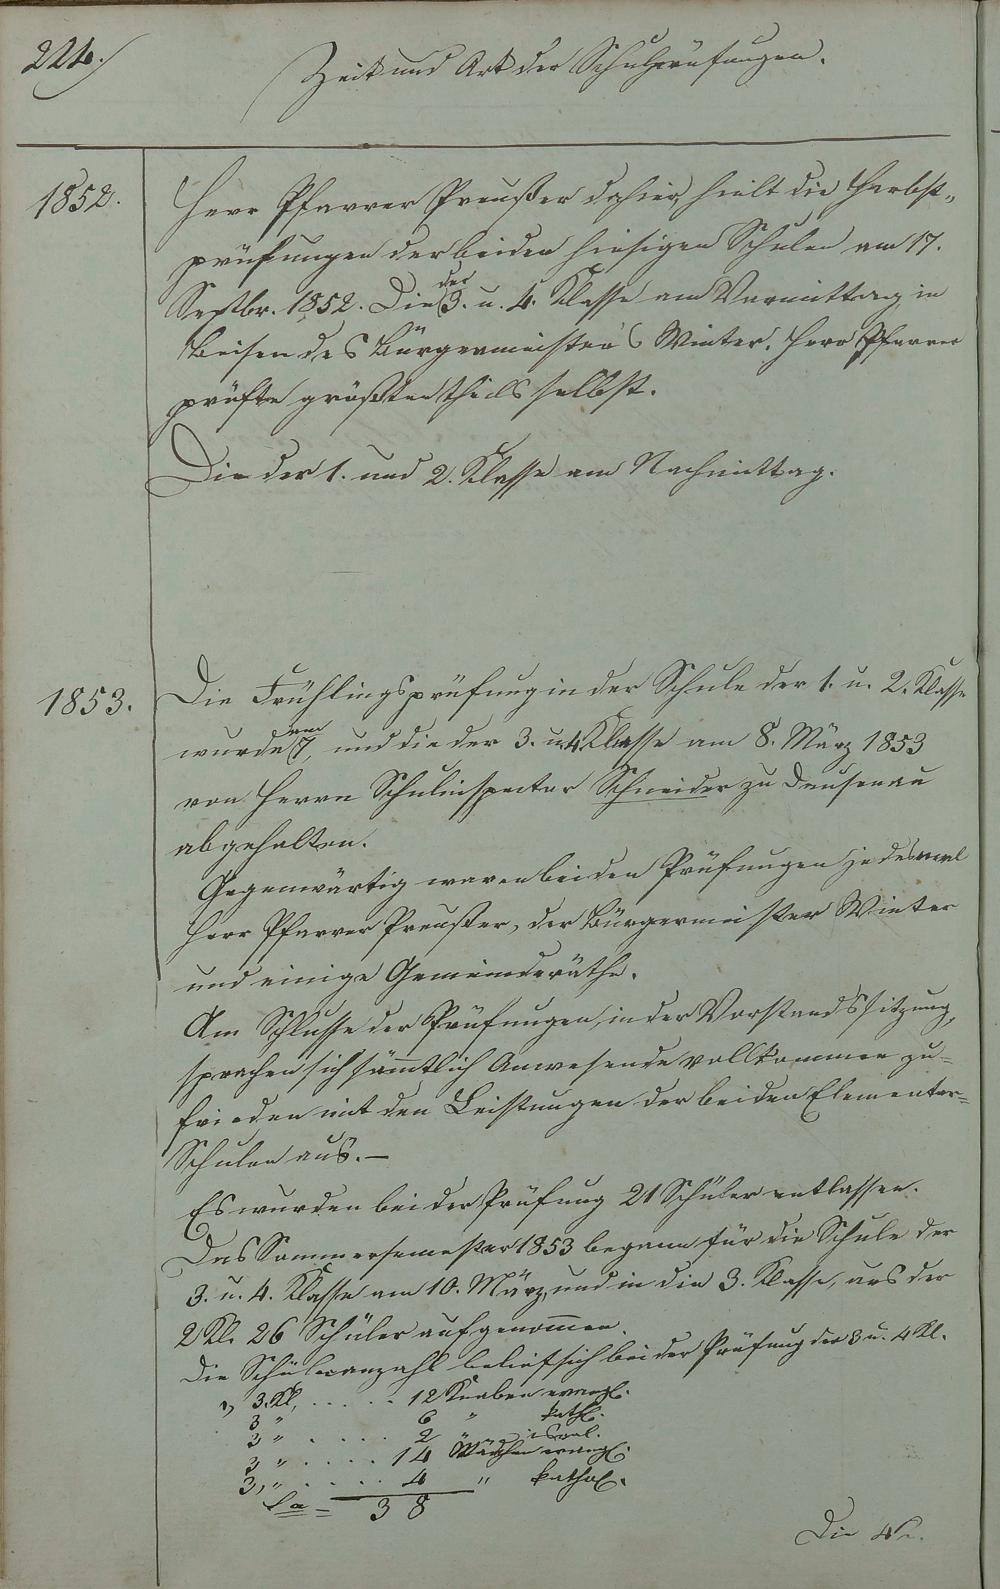 224.
Zeit und Art der Schulprüfungen.
1852.
Herr Pfarrer Preußer dahier, hielt die Herbst-
prüfungen der beiden hiesigen Schulen am 17.
Septbr. 1852. Die der 3. u. 4. Klasse am Vormittag in
Beisen des Bürgermeister's Winter. Herr Pfarrer
prüfte größtentheils selbst.
Die der 1. und 2. Klasse am Nachmittag.
1853.
Die Frühlingsprüfung in der Schule der 1. u. 2. Klasse
wurde am 7, und die der 3. u. 4 Klasse am 8. März 1853
von Herrn Schulinspector Schneider zu Deusenau
abgehalten.
Gegenwärtig waren bei den Prüfungen jedesmal
Herr Pfarrer Preußer, der Bürgermeister Winter
und einige Gemeinderäthe.
Am Schlusse der Prüfungen, in der Vorstandssitzung,
sprachen sich sämtlich Anwesende vollkommen zu-
frieden mit den Leistungen der beiden Elementar-
Schulen aus. —
Es wurden bei der Prüfung 21 Schüler entlassen.
Das Sommersemester 1853 begann für die Schule der
3. u. 4. Klasse am 10. März, und in die 3. Klasse, aus der
2 Kl. 26 Schüler aufgenommen.
Die Schüleranzahl belief sich bei der Prüfung der 3 u. 4 Kl.
1, 3. Kl, . . . . . 12 Knaben evangl.
3 " 6 " kathl.
3 " . . . . . 2 " israel.
3 " . . . . . 14 Mädchen evangl.
3, " . . . . . 4 " kathol.
Sa = 38
Die 4te.